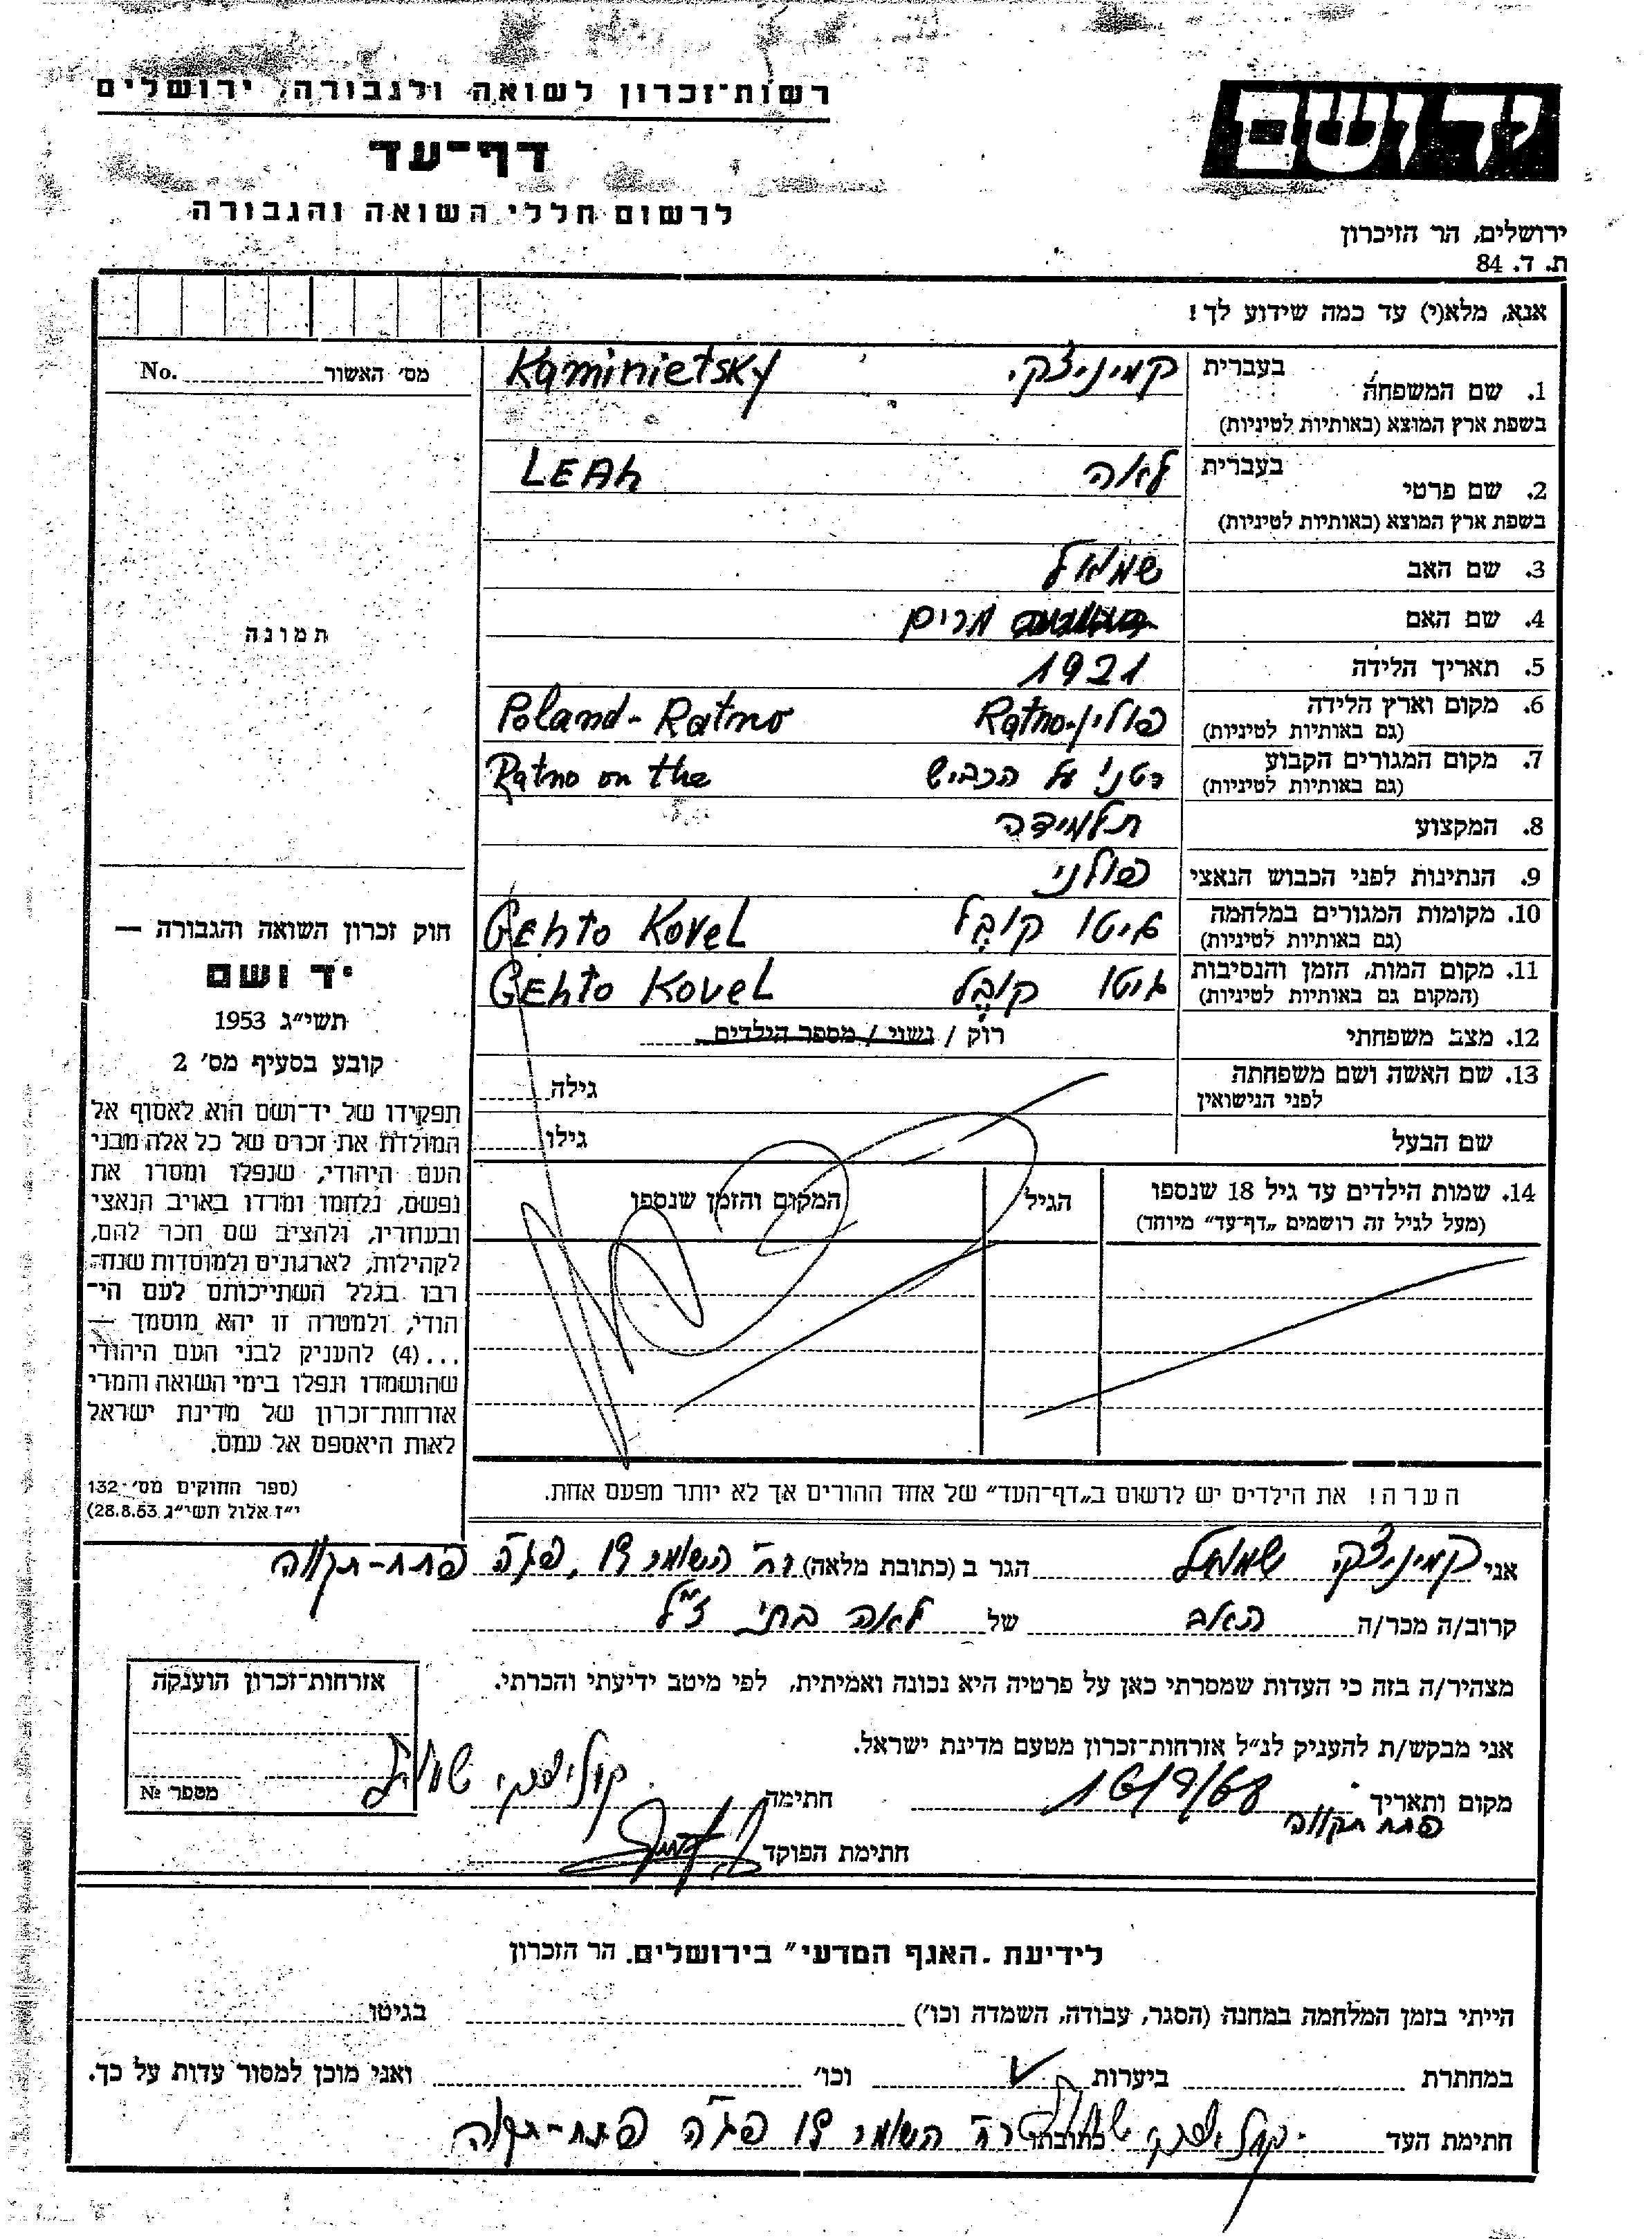 רשות־זכרון לשואה ולגבורה, ירושלים
יד ושם
דף־עד
לרשום חללי השואה והגבורה
ירושלים, הר הזיכרון
ת. ד. 84
אנא, מלא(י) עד כמה שידוע לך!
1. שם המשפחה בעברית קמיניצקי Kaminietsky
בשפת ארץ המוצא (באותיות לטיניות)
2. שם פרטי בעברית לאה LEAh
בשפת ארץ המוצא (באותיות לטיניות)
3. שם האב שמואל
4. שם האם מרים
5. תאריך הלידה 1921
6. מקום וארץ הלידה פולין-Ratno Poland-Ratno
(גם באותיות לטיניות)
7. מקום המגורים הקבוע רטני על הכביש Ratno on the
(גם באותיות לטיניות)
8. המקצוע תלמידה
9. הנתינות לפני הכבוש הנאצי פולני
10. מקומות המגורים במלחמה גיטו קובל GEhTO KOVEL
(גם באותיות לטיניות)
11. מקום המות, הזמן והנסיבות גיטו קובל GEhTO KOVEL
(המקום גם באותיות לטיניות)
12. מצב משפחתי רוק / נשוי / מספר הילדים
13. שם האשה ושם משפחתה גילה
לפני הנישואין
שם הבעל גילו
14. שמות הילדים עד גיל 18 שנספו הגיל המקום והזמן שנספו
(מעל לגיל זה רושמים „דף־עד״ מיוחד)
הערה! את הילדים יש לרשום ב„דף־העד״ של אחד ההורים אך לא יותר מפעם אחת.
מס׳ האשור No.
תמונה
חוק זכרון השואה והגבורה —
יד ושם
תשי״ג 1953
קובע בסעיף מס׳ 2
תפקידו של יד־ושם הוא לאסוף אל
המולדת את זכרם של כל אלה מבני
העם היהודי, שנפלו ומסרו את
נפשם, נלחמו ומרדו באויב הנאצי
ובעוזריו, ולהציב שם וזכר להם,
לקהילות, לארגונים ולמוסדות שנח־
רבו בגלל השתייכותם לעם הי־
הודי, ולמטרה זו יהא מוסמך —
...(4) להעניק לבני העם היהודי
שהושמדו ונפלו בימי השואה והמרי
אזרחות־זכרון של מדינת ישראל
לאות היאספם אל עמם.
(ספר החוקים מס׳ 132
י״ז אלול תשי״ג 28.8.53)
אני קמיניצקי שמואל הגר ב (כתובת מלאה) רח השומר פג׳ה פתח-תקווה
קרוב/ה מכר/ה האב של לאה בתי ז״ל
מצהיר/ה בזה כי העדות שמסרתי כאן על פרטיה היא נכונה ואמיתית, לפי מיטב ידיעתי והכרתי.
אני מבקש/ת להעניק לנ״ל אזרחות־זכרון מטעם מדינת ישראל.
מקום ותאריך חתימה
פתח תקווה
חתימת הפוקד
אזרחות־זכרון הוענקה
מספר №
לידיעת „האגף המדעי״ בירושלים. הר הזכרון
הייתי בזמן המלחמה במחנה (הסגר, עבודה, השמדה וכו׳) בגיטו
במחתרת ביערות וכו׳ ואני מוכן למסור עדות על כך.
חתימת העד כתובתו רח השומר פג׳ה פתח-תקווה